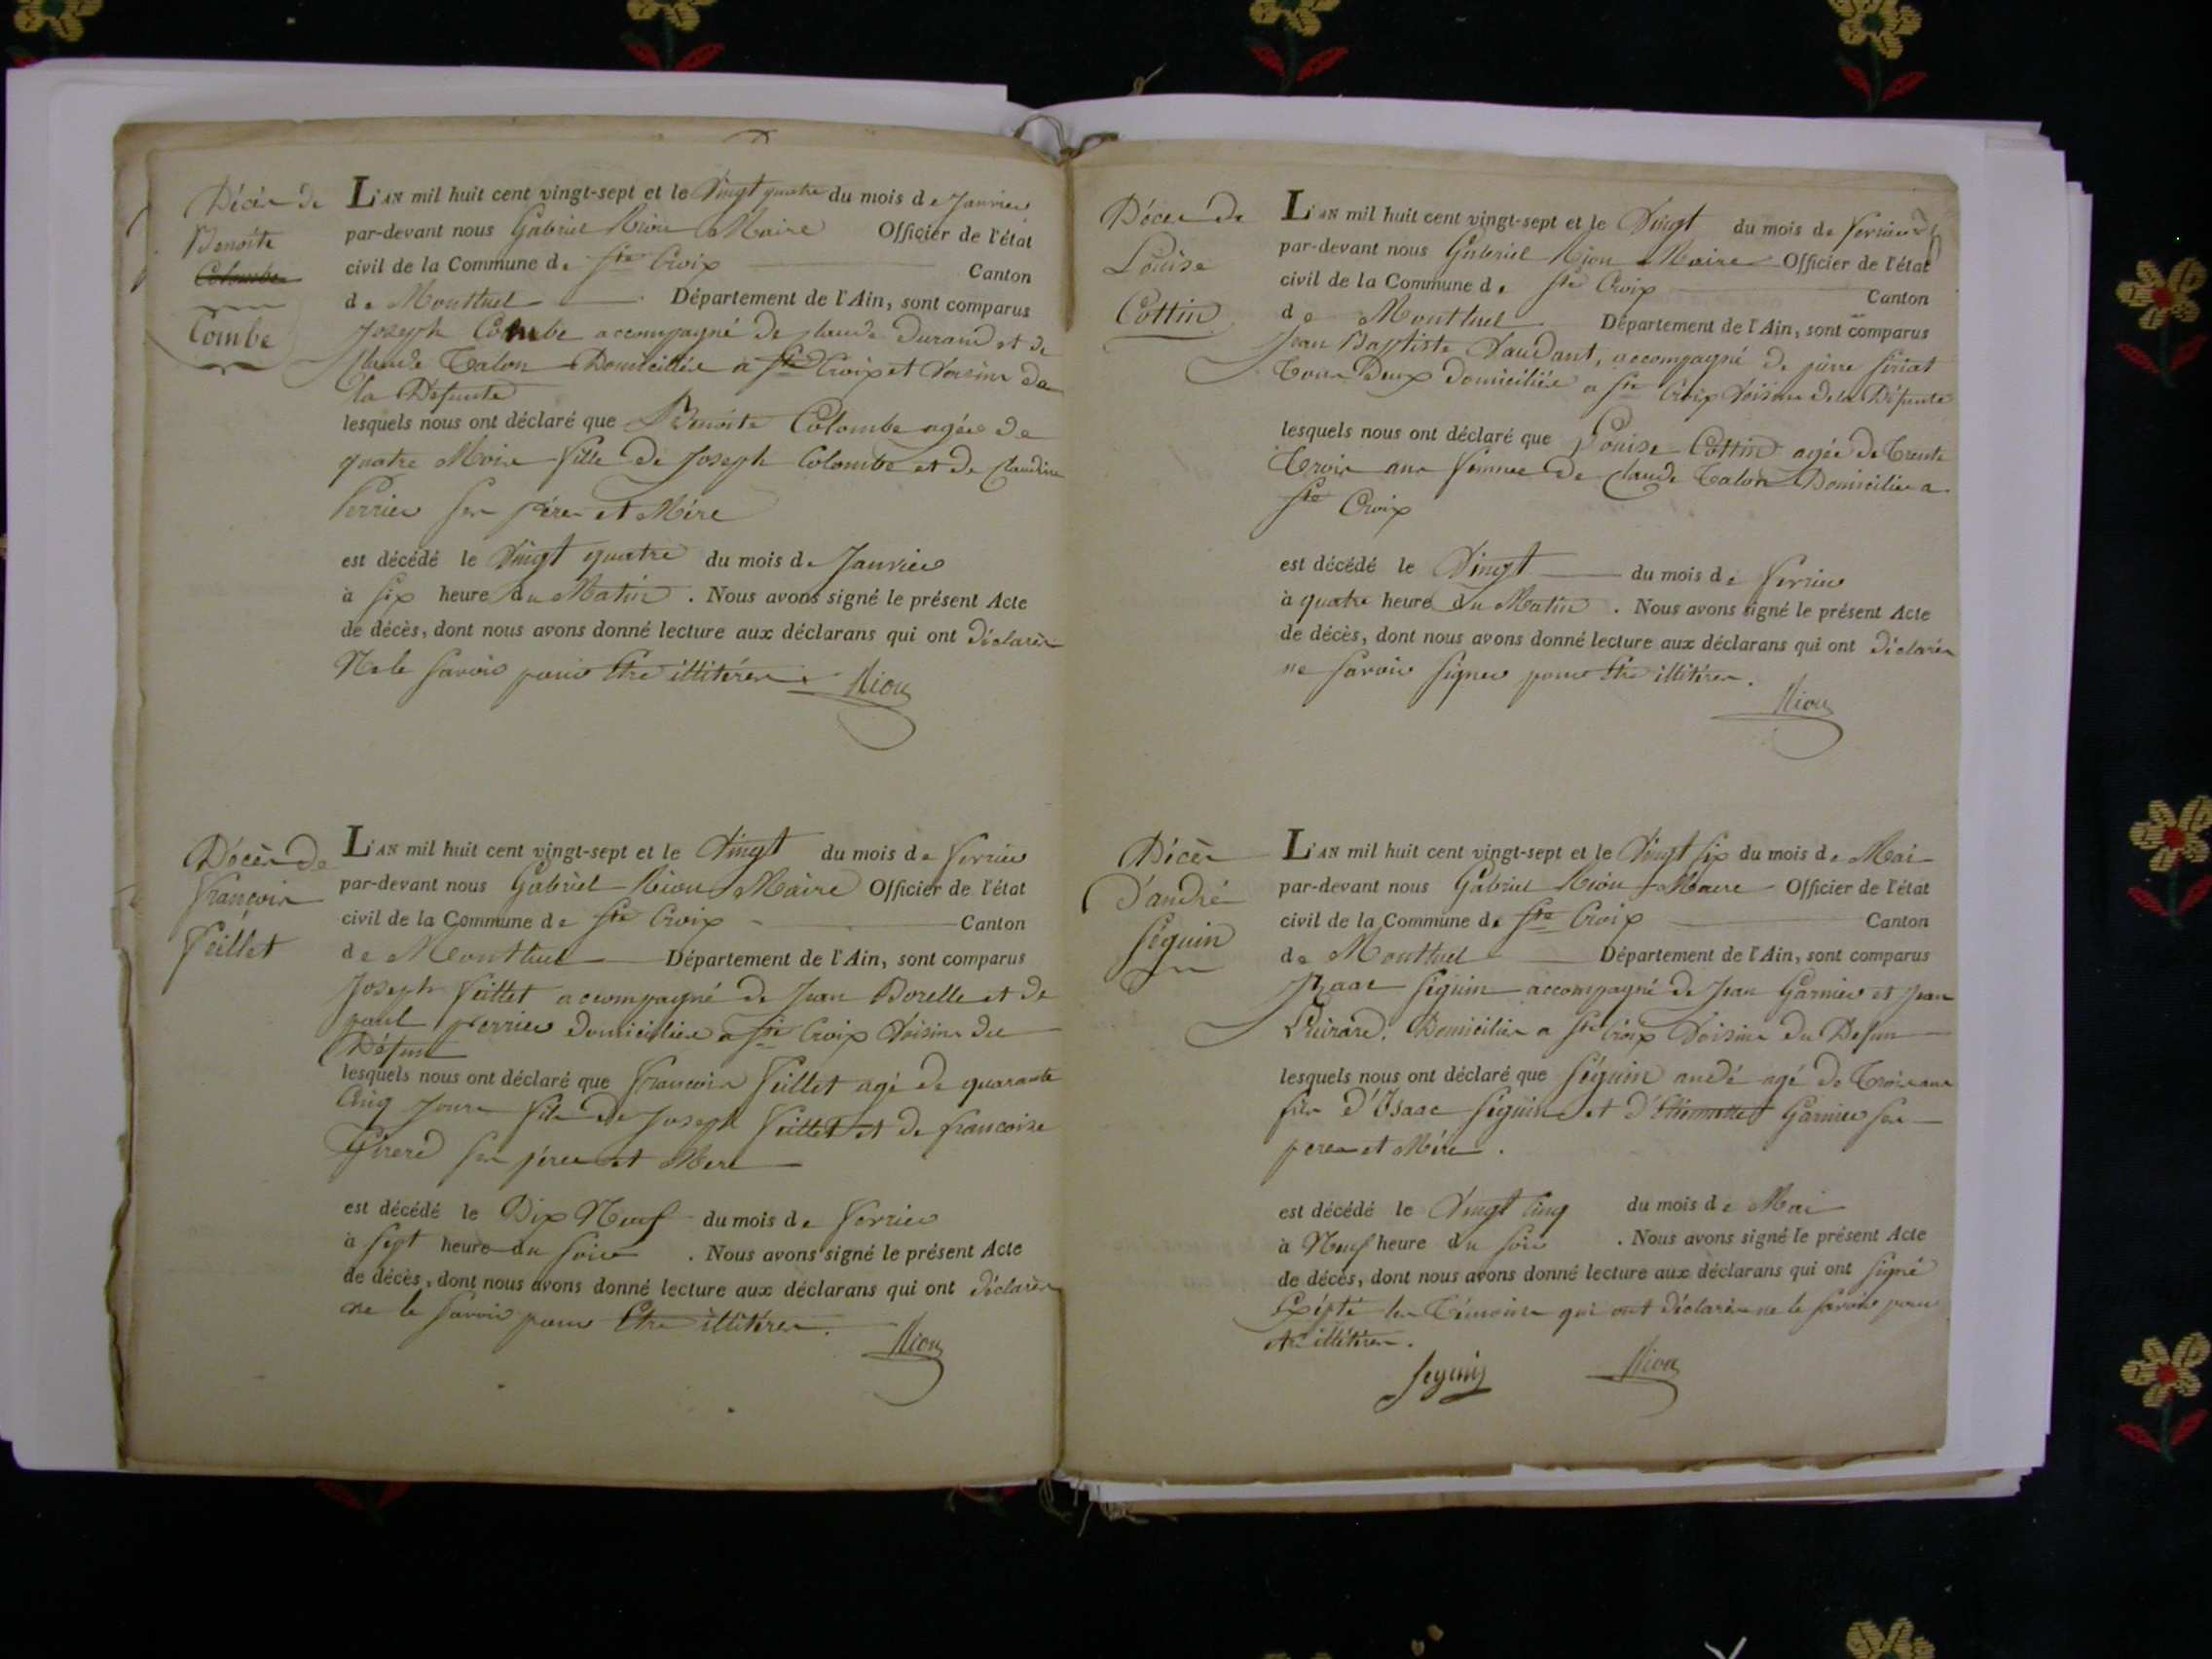 Décès de
Benoite
Colombe
Combe
L'AN mil huit cent vingt-sept et le Vingt quatre du mois de Janvier
par-devant nous Gabriel Riou Maire Officier de l'état
civil de la Commune de Ste Croix Canton
de Montluel Département de l'Ain, sont comparus
Joseph Combe accompagné de Claude Durand et de
Claude Talon Domiciliés a Ste Croix et Voisins de
la Defunte
lesquels nous ont déclaré que Benoite Colombe agée de
quatre Mois fille de Joseph Colombe et de Claudine
Perrier ses péres et Mére
est décédé le Vingt quatre du mois de Janvier
à Six heure du Matin . Nous avons signé le présent Acte
de décès, dont nous avons donné lecture aux déclarans qui ont déclarés
Ne le Savoir pour Etre illitéres . Riou
Décès de
François
Feillet
L'AN mil huit cent vingt-sept et le Vingt du mois de Ferrier
par-devant nous Gabriel Riou Maire Officier de l'état
civil de la Commune de Ste Croix Canton
de Montluel Département de l'Ain, sont comparus
Joseph Feillet accompagné de Jean Borelle et de
paul perrier domiciliés a Ste Croix Voisins du
Défun
lesquels nous ont déclaré que François Feillet agé de quarante
Cinq Jours fils de Joseph Feillet et de francoise
Girerd ses péres et Mere
est décédé le Dix Neuf du mois de Ferrier
à Sept heure du Soir . Nous avons signé le présent Acte
de décès, dont nous avons donné lecture aux déclarans qui ont déclarés
ne le Savoir pour Etre illitéres.
Riou
Décès de
Louise
Cottin
L'AN mil huit cent vingt-sept et le Vingt du mois de Ferrier
par-devant nous Gabriel Riou Maire Officier de l'état
civil de la Commune de Ste Croix Canton
de Montluel Département de l'Ain, sont comparus
Jean Baptiste Vaudant, accompagné de pierre
Tous Deux domiciliés a Ste Croix Voisins de la Défunte
lesquels nous ont déclaré que Louise Cottin agée de Trente
Trois ans femme de Claude Talon Domiciliés a
Ste Croix
est décédé le Vingt du mois de Ferrier
à quatre heure du Matin . Nous avons signé le présent Acte
de décès, dont nous avons donné lecture aux déclarans qui ont déclarés
ne Savoir Signer pour Etre illitéres.
Riou
Décès
D'andré
Séguin
L'AN mil huit cent vingt-sept et le Vingt Six du mois de Mai
par-devant nous Gabriel Riou Maire Officier de l'état
civil de la Commune de Ste Croix Canton
de Montluel Département de l'Ain, sont comparus
Izaac Séguin accompagné de Jean Garnier et Jean
Domiciliés a Ste Croix Voisins du Defun
lesquels nous ont déclaré que Séguin andé agé de Trois ans
fils d'Isaac Séguin et d'Etiennette Garnier ses
peres et Mére .
est décédé le Vingt Cinq du mois de Mai
à Neuf heure du soir . Nous avons signé le présent Acte
de décès, dont nous avons donné lecture aux déclarans qui ont Signé
Exépté les Témoins qui ont déclarés ne le Savoir pour
etre illitéres.
Seguin Riou